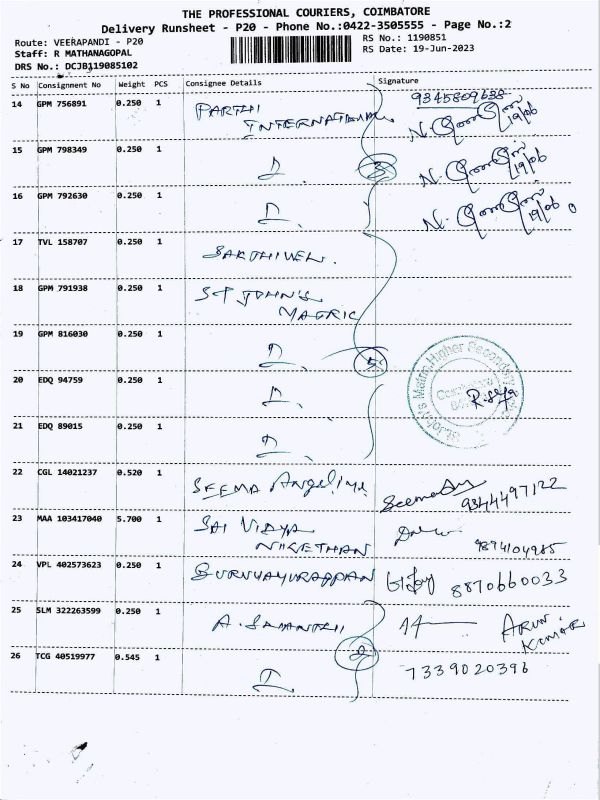 THE PROFESSIONAL COURIERS, COIMBATORE
Delivery Runsheet - P20 - Phone No.:0422-3505555 - Page No.:2
Route: VEERAPANDI - P20
RS No.: 1190851
Staff: R MATHANAGOPAL
RS Date: 19-Jun-2023
DRS No.: DCJB119085102
S No Consignment No Weight PCS Consignee Details Signature
14 GPM 756891 0.250 1 PARTHI INTERNATIONAL 9345809638 19/06
15 GPM 798349 0.250 1 19/06
16 GPM 792630 0.250 1 19/06
3
17 TVL 158707 0.250 1 SAKTHIVEL.
18 GPM 791938 0.250 1 ST JOHN'S MATRIC
19 GPM 816030 0.250 1
5
20 EDQ 94759 0.250 1
St.John's Matric.Higher Secondary
Coimbatore
21 EDQ 89015 0.250 1
22 CGL 14021237 0.520 1 SEEMA Angeline 9344497122
23 MAA 103417040 5.700 1 SAI VIDYA NIKETHAN 9894104985
24 VPL 402573623 0.250 1 GURUVAYURAPPAN 8870660033
25 SLM 322263599 0.250 1 ARUN KUMAR
2
26 TCG 40519977 0.545 1 7339020396